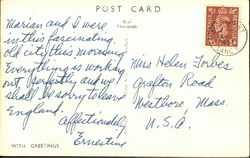 POST CARD
Real
Photograph
Marian and I were
in this fascinating
old city this morning
Everything is working
out perfectly and we
shall be sorry to leave
England.
Affectionately
Ernestine
Mrs Helen Forbes
Grafton Road
Westboro, Mass.
U.S.A.
WITH GREETINGS